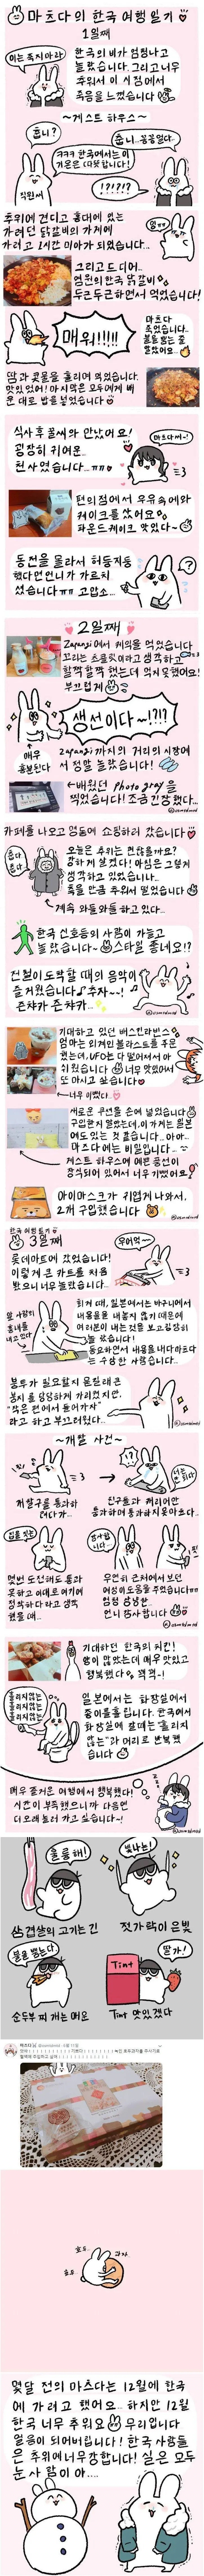 마츠다의 한국 여행일기
1일째
이는 죽지아라!
한국의 비가 엄청나고
놀랐습니다. 그리고 너무
추워서 이 시점에서
죽음을 느꼈습니다
~게스트 하우스~
춥니?
춥니..꽁꽁얼다..
ㅋㅋㅋ 한국에서는 이
기온은 따뜻합니다!
!?!?!?
직원씨
추위에 견디고 홍대에 있는
가려던 닭갈비의 가게에
가려고 1시간 미아가 되었습니다..
그리고 드디어..
염원의 한국 닭갈비
두근두근하면서 먹었습니다!
매워!!!!
마츠다
죽었습니다..
불을 뿜는 줄
알았어요...
땀과 콧물을 흘리며 먹었습니다.
맛있었어! 마지막은 모두에게 배
운 대로 밥을 넣었습니다
식사 후 꿀씨와 만났어요!
굉장히 귀여운..
천사였습니다...ㅠㅠ
마츠다씨~!
편의점에서 우유속에와
케이크를 샀어요
파운드케이크 맛있다~
동전을 몰라서 허둥지둥
했다면언니가 가르치
셨습니다ㅠㅠ 고맙소...
2일째
Zapangi에서 케익을 먹었습니다
꼬리는 초콜릿이라고 생각하고
깔짝깔짝 했는데 먹지 못했어요!
부끄럽게
생선이다~!?!?
매우
흥분된다
zapangi까지의 거리의 시장에
서 양말 놀랐습니다!
배웠던 Photo gray을
찍었습니다! 조금 긴장했다...
카페를 나오고 명동에 쇼핑하러 갔습니다
춥다
춥다..
오늘은 추위는 괜찮을까요?
강하게 살았다! 마음은 그렇게
생각하고 있었습니다..
폭풀 만큼 추워서 떨었습니다
계속 와들와들 하고 있다..
한국 신호등의 사람이 가늘고
놀랐습니다~ 스타일 좋네요!?
전철이 도착할 때의 음악이
즐거웠습니다 자~~!
쿤챠가 쿤챠가..
기대하고 있던 배스킨라빈스
엄마는 외계인 블라스트를 주문
했는데, UFO는 다 떨어져서 아
쉬웠습니다 너무 맛있어서
또 마시고 싶습니다
너무 이뻤다..
새로운 쿠션을 손에 넣었습니다
구입한지 알았는데, 이 가게는 일본
에도 있는 것 같습니다... 아아..
마츠다에는 비밀입니다...
게스트 하우스에 예쁜 풍선이
장식되어 있어서 너무 기뻤어요!
아이마스크가 귀엽게 나와서,
2개 구입했습니다
한국 여행일기
3일째
롯데마트에 갔었습니다!
이렇게 큰 카트를 처음
봤으니 너무 놀랐습니다...
우히여~
앞사람의
흉내를
내고 있다
회계 때, 일본에서는 바구니에서
내용물을 내놓지 않기 때문에
여러분이 내는 것을 보고 당황하
고 놀랐습니다!
초요하면서 내용을 내다 마츠다
는 수상한 사람이었습니다..
봉투가 필요할지 몰랐는데 큰
봉지를 당당하게 가리켰지만,
"작은 편에서 들어가자"
라고 하고 부끄러웠다...
~개찰 사건~
개찰구를 통과하
려다가..
친구들과 캐리어만
통과하여 통과하지 못아요..
입을 찢는
몇번 도전해도 통과
못하고 이대로 여기에
정착하다 라고 생각
했을 때..
우연히 근처에서 보던
여성이도움을 주셨습니다ㅠㅠ
엉엉 엉엉엉..
언니 감사합니다
기대하던 한국의 치킨!
양이 많았는데 매우 맛있고
행복했다 꺽꺽~!
흘리지않는
흘리지않는
흘리지않는
흘리지않는
일본에서는 화장실에서
종이를흘립니다. 한국에서
화장실에 갈때는 "흘리지
않는"가 머리로 반복했
습니다
매우 즐거운 여행에서 행복했다!
시간이 부족했으니까 다음엔
더 오래 놀러 가고 싶습니다~!
훌륭해!
빛나는!
삼겹살의 고기는 긴
젓가락이 은빛
불을 뿜는다
딸기!
Tint
순두부찌개는 매운
Tint 맛있겠다
호두..
과자..
호두..
몇달 전의 마츠다는 12월에 한국
에 가려고 했어요... 하지만 12월
한국 너무 추워요 무리입니다
얼음이 되어버립니다! 한국 사람들
은 추위에 너무 강합니다! 실은 모두
눈사람이 아....